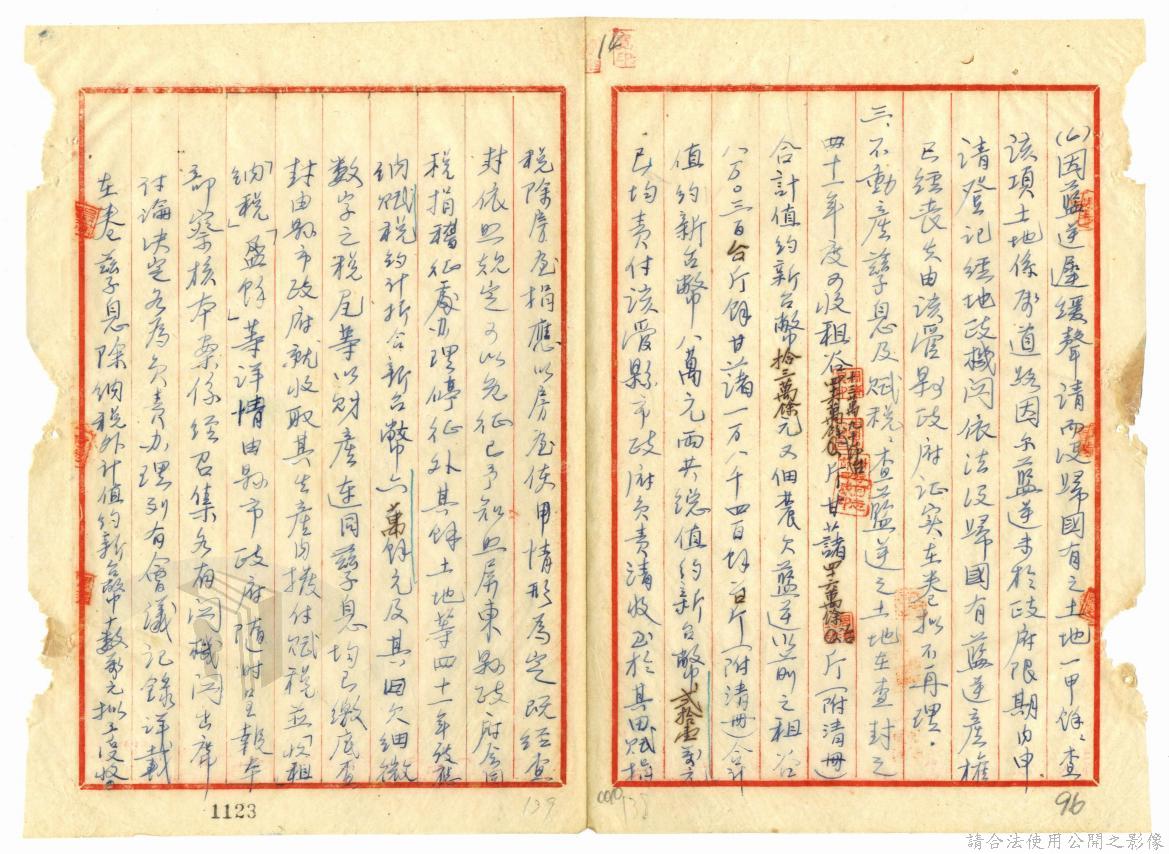 (七)因藍逆遲緩聲請而沒歸國有之土地一甲餘、查
該項土地係街道路因尔藍逆未於政府限期內申
請登記經地政機関依法沒歸國有藍逆產權
已經喪失由該管縣政府証实在卷拟不再理。
三、不動產孳息及賦稅、查藍逆之土地在查封之
四十一年度可收租谷 斤甘藷四十六萬餘斤(附清冊)
合計值約新台幣拾三萬餘元又佃農欠藍逆以前之租谷
八万〇三百台斤餘甘藷一万八千四百餘台斤(附清冊)合計
值約新台幣八萬元两共総值約新台幣弍拾壹万元
已均責付該管縣市政府負責清收至於其田賦捐
稅除房屋捐應以房屋使用情形為定既經查
封依照規定可以免征已予知照屏東縣政府会同
稅捐稽征處办理停征外其餘土地等四十一年份應
納賦稅約計折合新台幣六萬餘元及其旧欠細微
数字之稅尾等以財產連同孳息均已繳底查
封由縣市政府就收取其生產內撥付賦稅並「收租」
「納稅」「盈餘」等詳情由縣市政府随时呈報本
部察核本案係經召集各有関機関出席
讨論决定各為負責办理列有會議記錄详載
在卷孳息除納稅外計值約新台幣十數万元拟
14
96
139
1123
請合法使用公開之影像